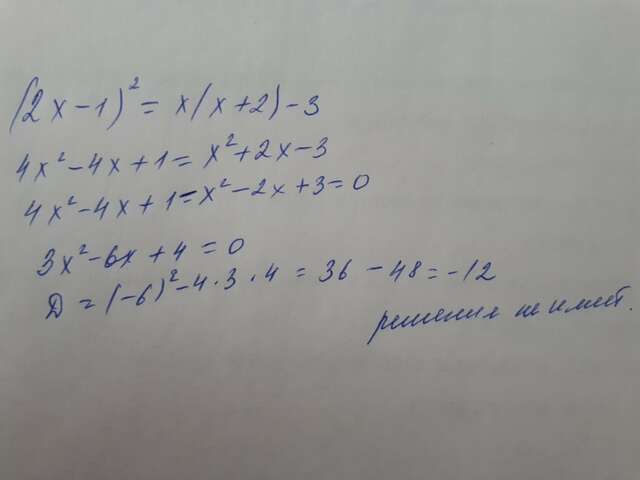 (2x-1)² = x(x+2)-3
4x²-4x+1 = x²+2x-3
4x²-4x+1-x²-2x+3=0
3x²-6x+4=0
D=(-6)²-4·3·4=36-48=-12
решения не имеет.